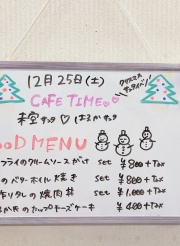 12月25日(土)
クリスマス
CAFE TIME♡♡
FOOD MENU
フライのクリームソースがけ set ¥800+Tax
のバターホイル焼き set ¥800+Tax
作りダレの焼肉丼 set ¥1,000+Tax
のカップチーズケーキ ¥400+Tax